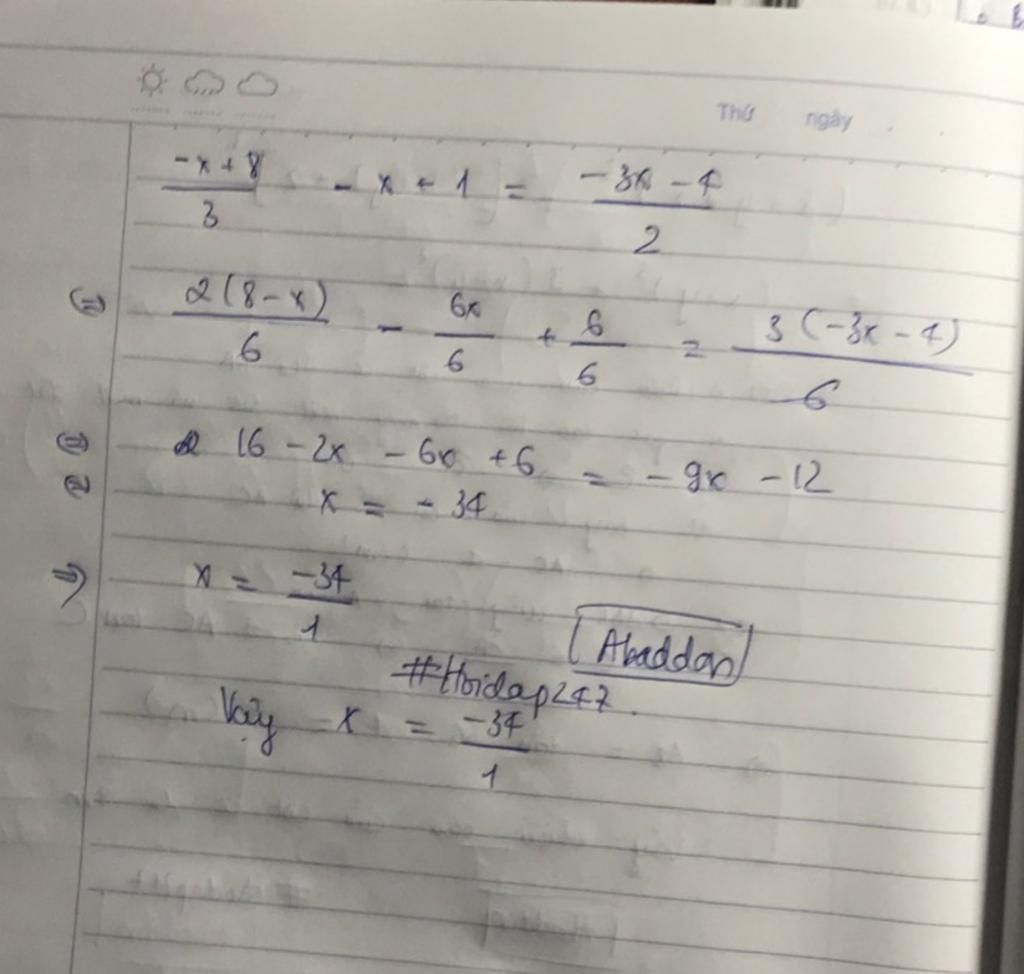 Thứ ngày
-x+8/3 - x + 1 = -3x-4/2
(=) 2(8-x)/6 - 6x/6 + 6/6 = 3(-3x-4)/6
(=) 16 - 2x - 6x + 6 = -9x - 12
(=) x = -34
=) x = -34/1
Abaddon
#Hoidap247.
Vậy x = -34/1